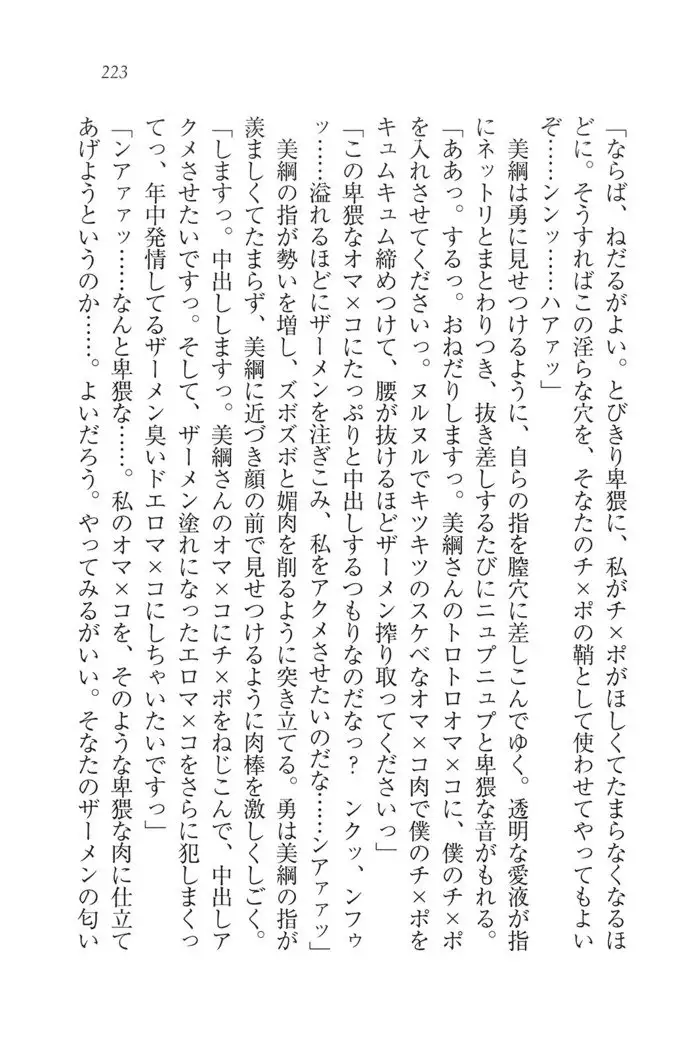 223
「ならば、ねだるがよい。とびきり卑猥に、私がチ×ポがほしくてたまらなくなるほ
どに。そうすればこの淫らな穴を、そなたのチ×ポの鞘として使わせてやってもよい
ぞ……ンンッ……ハアァッ」
　美綱は勇に見せつけるように、自らの指を膣穴に差しこんでゆく。透明な愛液が指
にネットリとまとわりつき、抜き差しするたびにニュプニュプと卑猥な音がもれる。
「ああっ。するっ。おねだりしますっ。美綱さんのトロトロオマ×コに、僕のチ×ポ
を入れさせてくださいっ。ヌルヌルでキツキツのスケベなオマ×コ肉で僕のチ×ポを
キュムキュム締めつけて、腰が抜けるほどザーメン搾り取ってくださいっ」
「この卑猥なオマ×コにたっぷりと中出しするつもりなのだなっ？　ンクッ、ンフゥ
ッ……溢れるほどにザーメンを注ぎこみ、私をアクメさせたいのだな……ンアァァッ」
　美綱の指が勢いを増し、ズボズボと媚肉を削るように突き立てる。勇は美綱の指が
羨ましくてたまらず、美綱に近づき顔の前で見せつけるように肉棒を激しくしごく。
「しますっ。中出ししますっ。美綱さんのオマ×コにチ×ポをねじこんで、中出しア
クメさせたいですっ。そして、ザーメン塗れになったエロマ×コをさらに犯しまくっ
てっ、年中発情してるザーメン臭いドエロマ×コにしちゃいたいですっ」
「ンアァァッ……なんと卑猥な……。私のオマ×コを、そのような卑猥な肉に仕立て
あげようというのか……。よいだろう。やってみるがいい。そなたのザーメンの匂い